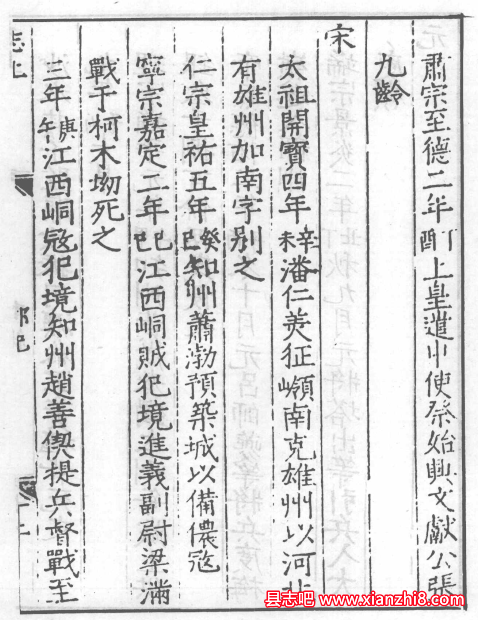 肅宗至德二年丁酉上皇遣中使祭始興文獻公張
九齡
宋
太祖開寶四年辛未潘仁美征嶺南克雄州以河北
有雄州加南字别之
仁宗皇祐五年癸巳知州蕭渤預築城以備儂冦
寧宗嘉定二年己巳江西峒賊犯境進義副尉梁滿
戰于柯木坳死之
三年庚午江西峒冦犯境知州趙善偰提兵督戰至
县志吧 www.xianzhi8.com